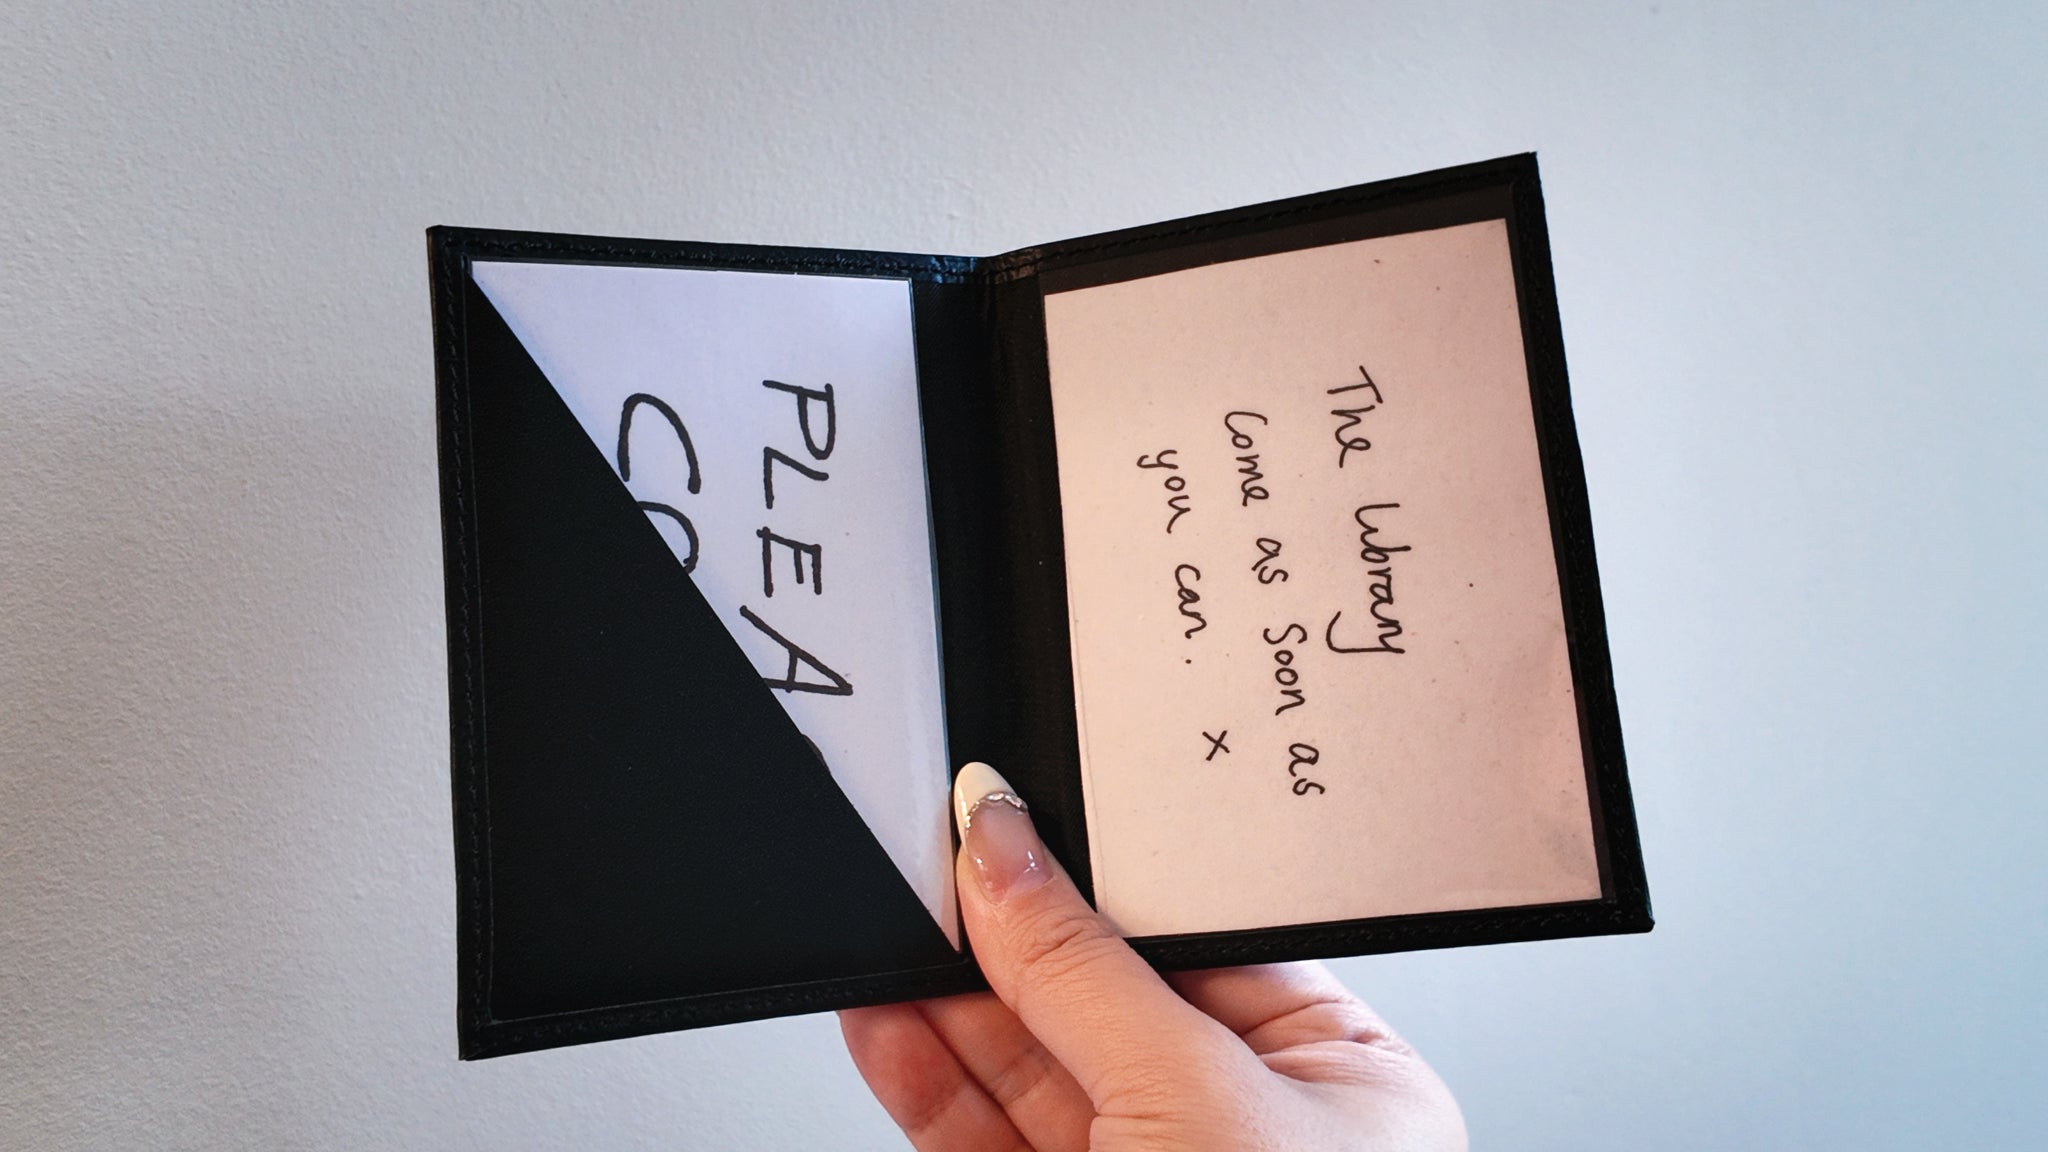 PLEA
CO
The Library
Come as Soon as
you can. x